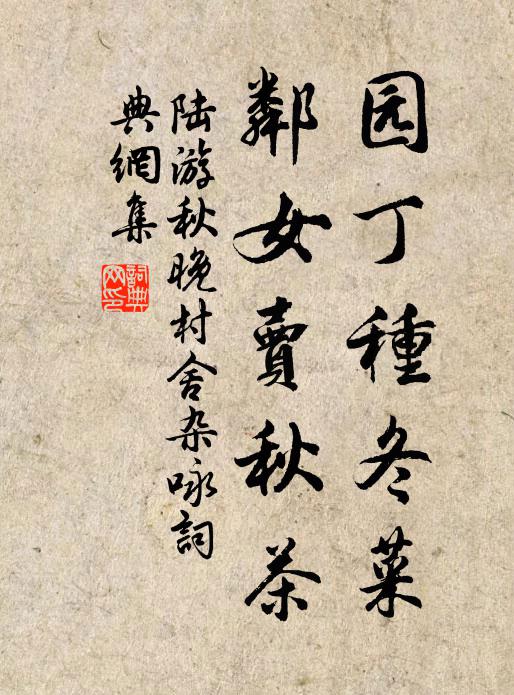 园丁種冬菜
鄰女賣秋茶
陆游秋晚村舍杂咏詞
典網集
詞典
网印